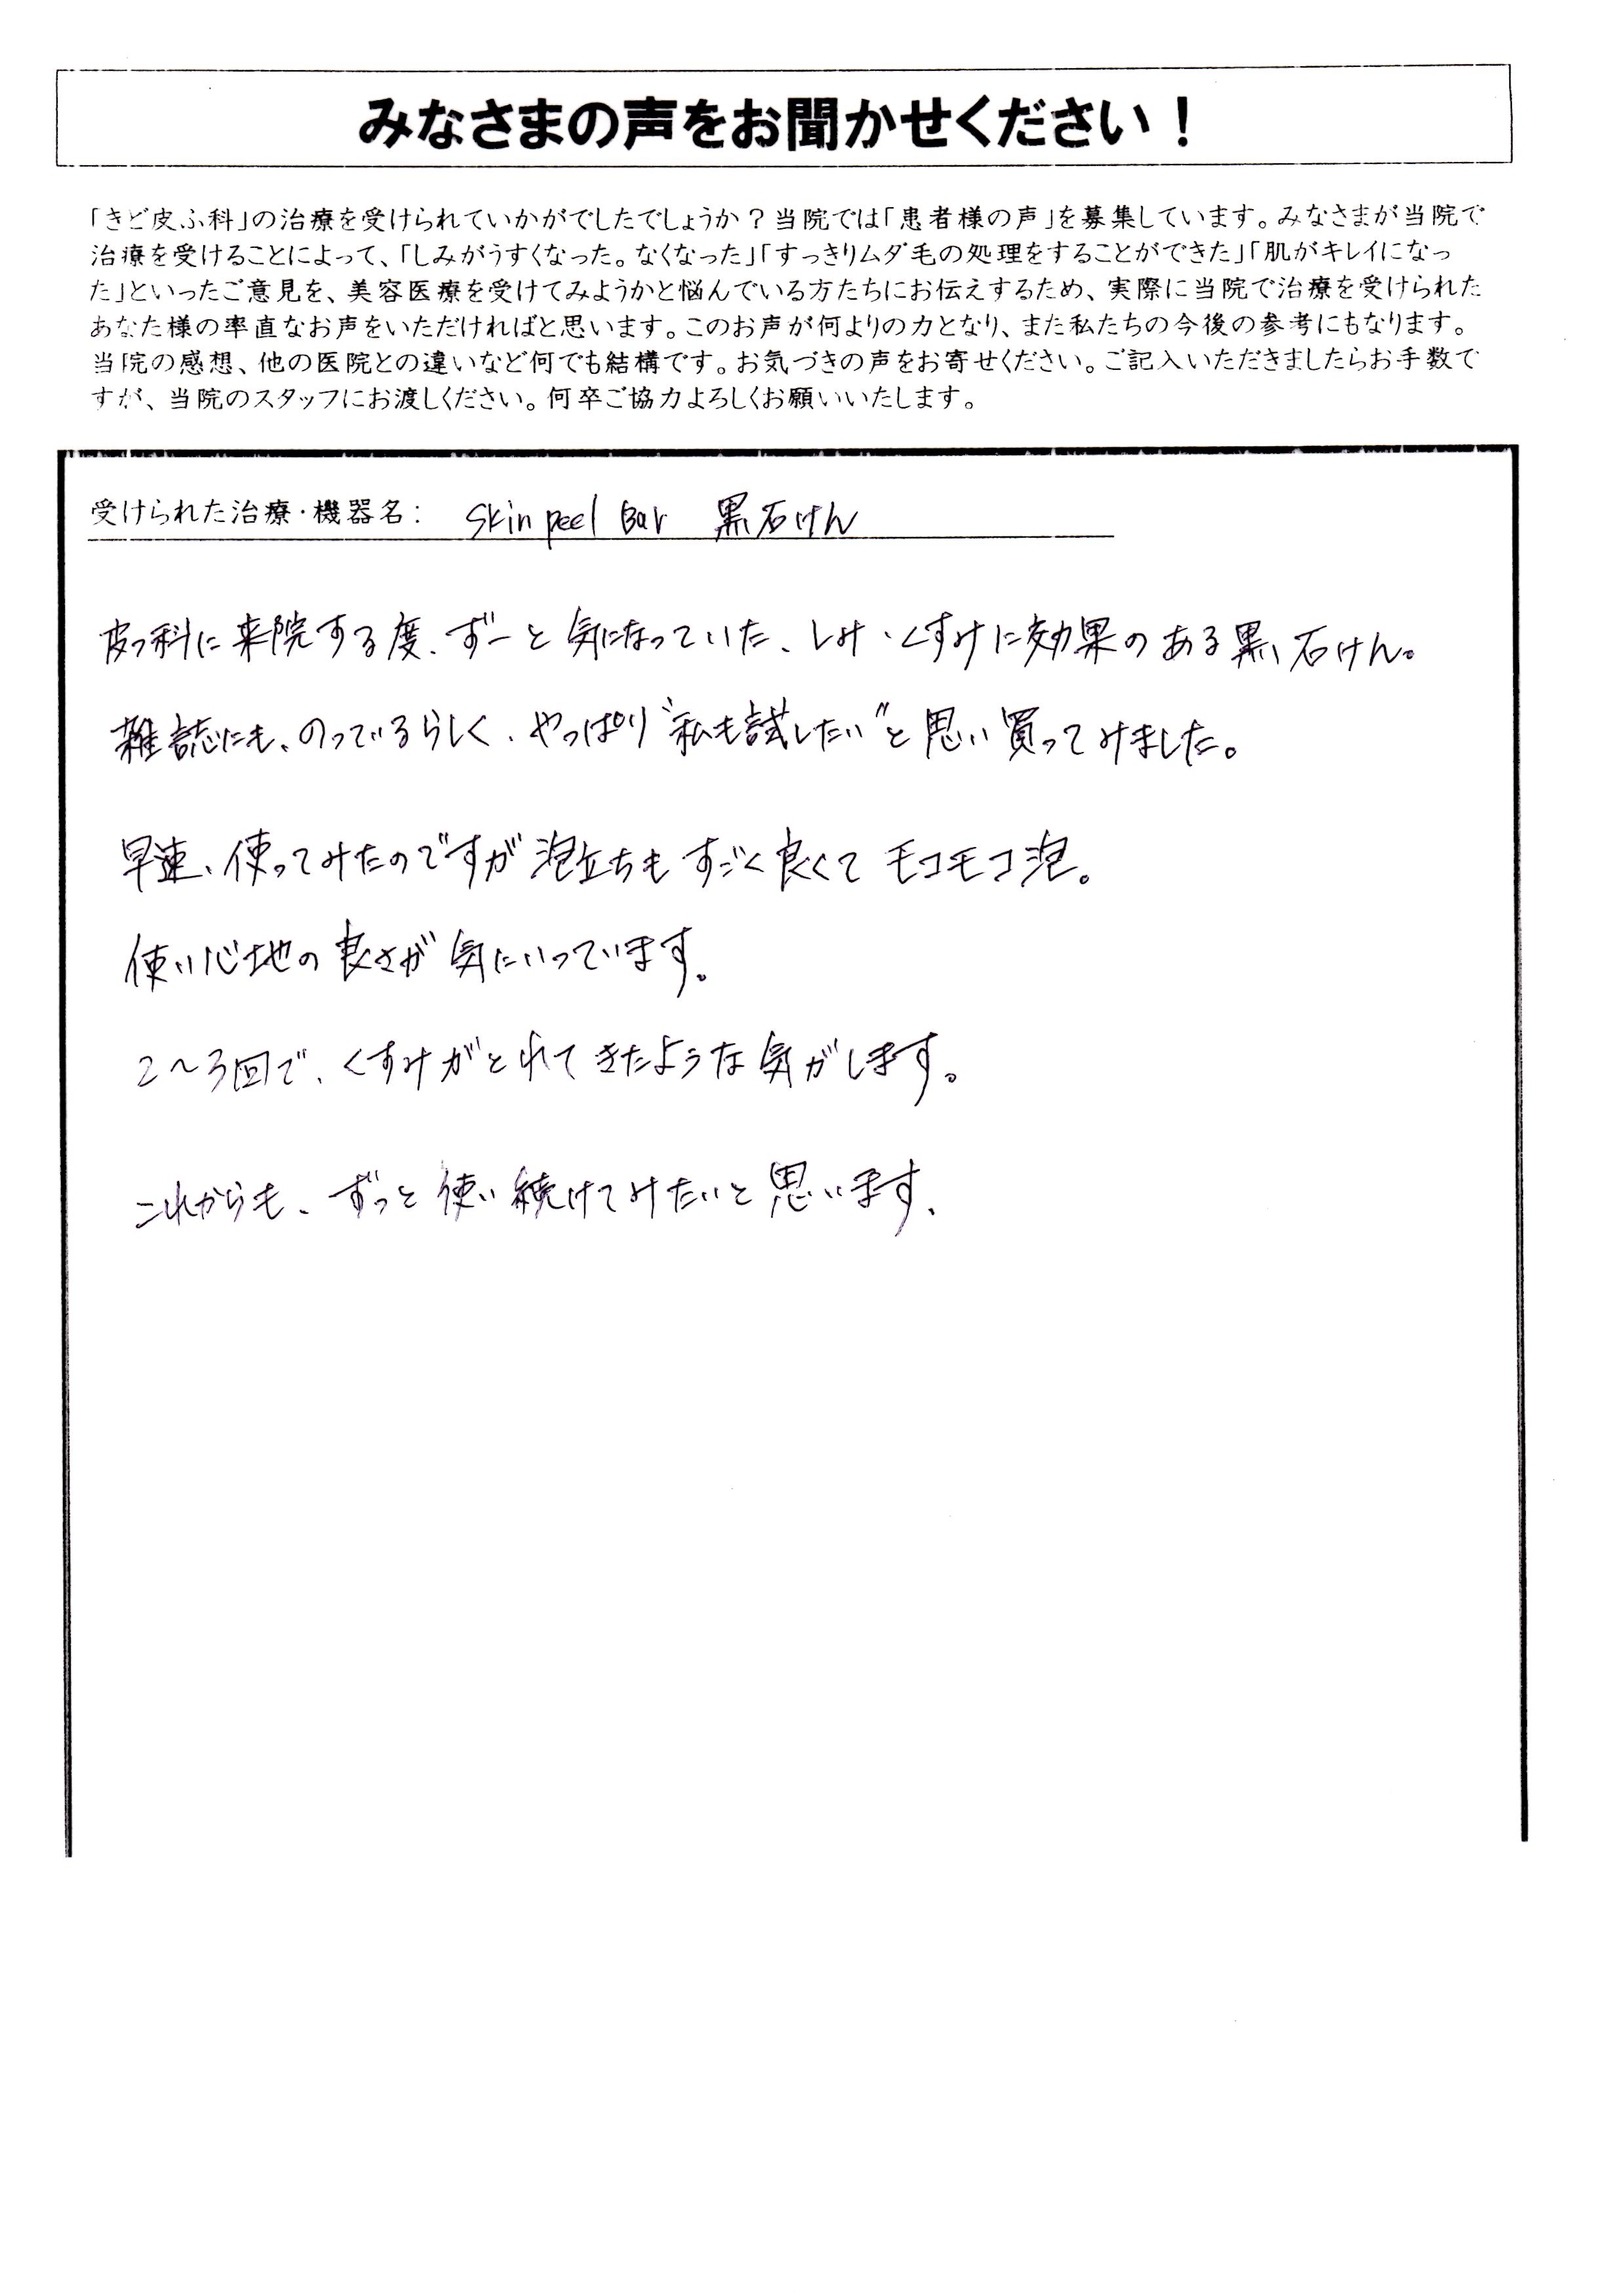 みなさまの声をお聞かせください！
「きど皮ふ科」の治療を受けられていかがでしたでしょうか？当院では「患者様の声」を募集しています。みなさまが当院で
治療を受けることによって、「しみがうすくなった。なくなった」「すっきりムダ毛の処理をすることができた」「肌がキレイになっ
た」といったご意見を、美容医療を受けてみようかと悩んでいる方たちにお伝えするため、実際に当院で治療を受けられた
あなた様の率直なお声をいただければと思います。このお声が何よりの力となり、また私たちの今後の参考にもなります。
当院の感想、他の医院との違いなど何でも結構です。お気づきの声をお寄せください。ご記入いただきましたらお手数で
すが、当院のスタッフにお渡しください。何卒ご協力よろしくお願いいたします。
受けられた治療・機器名： Skin peel Bar 黒石けん
皮フ科に来院する度、ずーと気になっていた、しみ・くすみに効果のある黒石けん。
雑誌にも、のっているらしく、やっぱり“私も試したい”と思い買ってみました。
早速、使ってみたのですが泡立ちもすごく良くてモコモコ泡。
使い心地の良さが気にいっています。
2〜3回で、くすみがとれてきたような気がします。
これからも、ずっと使い続けてみたいと思います、